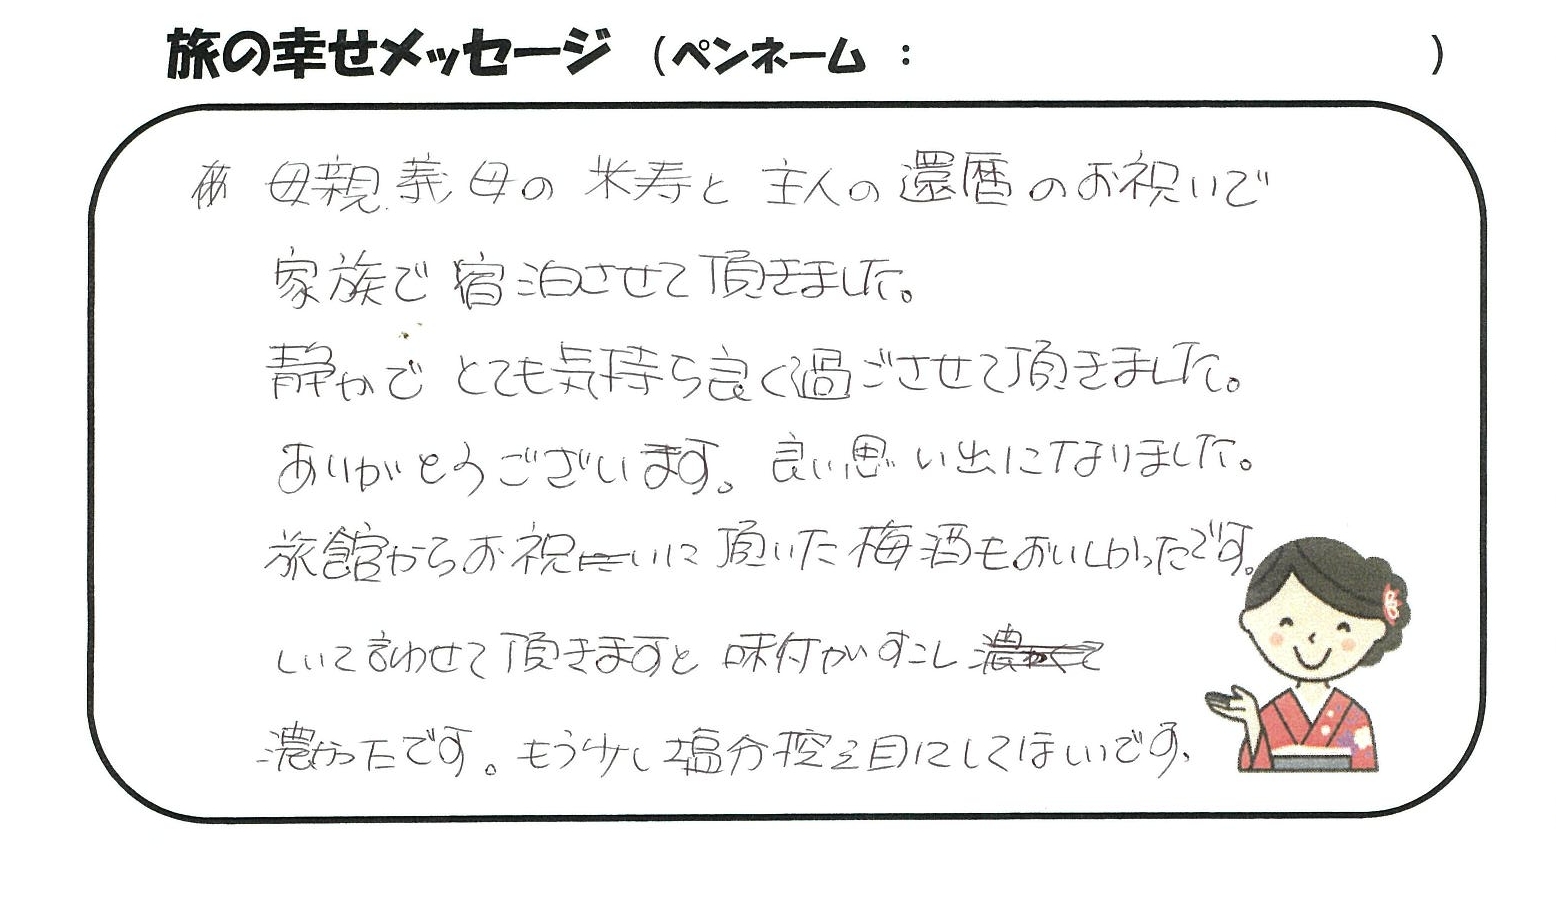 旅の幸せメッセージ （ペンネーム ： ）
母親、義母の 米寿と 主人の還暦のお祝いで
家族で 宿泊させて頂きました。
静かで とても気持ち良く過ごさせて頂きました。
ありがとうございます。良い思い出になりました。
旅館からお祝いに頂いた梅酒もおいしかったです。
しいて言わせて頂きますと 味付がすこし
濃かったです。もう少し塩分控え目にしてほしいです、